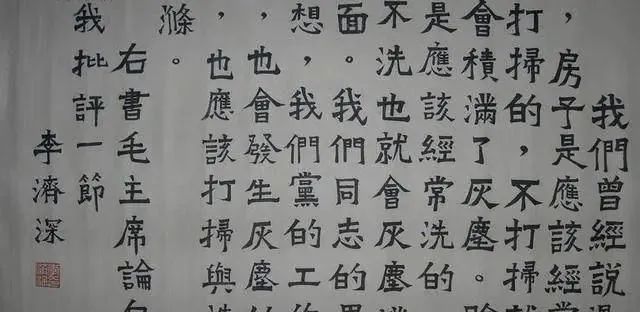 我們曾經說過
，房子是應該經常
打掃的，不打掃就
會積滿了灰塵。臉
是應該經常洗的
不洗也就會灰塵滿
面。我們同志的思
想，我們黨的工作
，也會發生灰塵的
，也應該打掃與洗
滌。
右書毛主席論自
我批評一節
李濟深